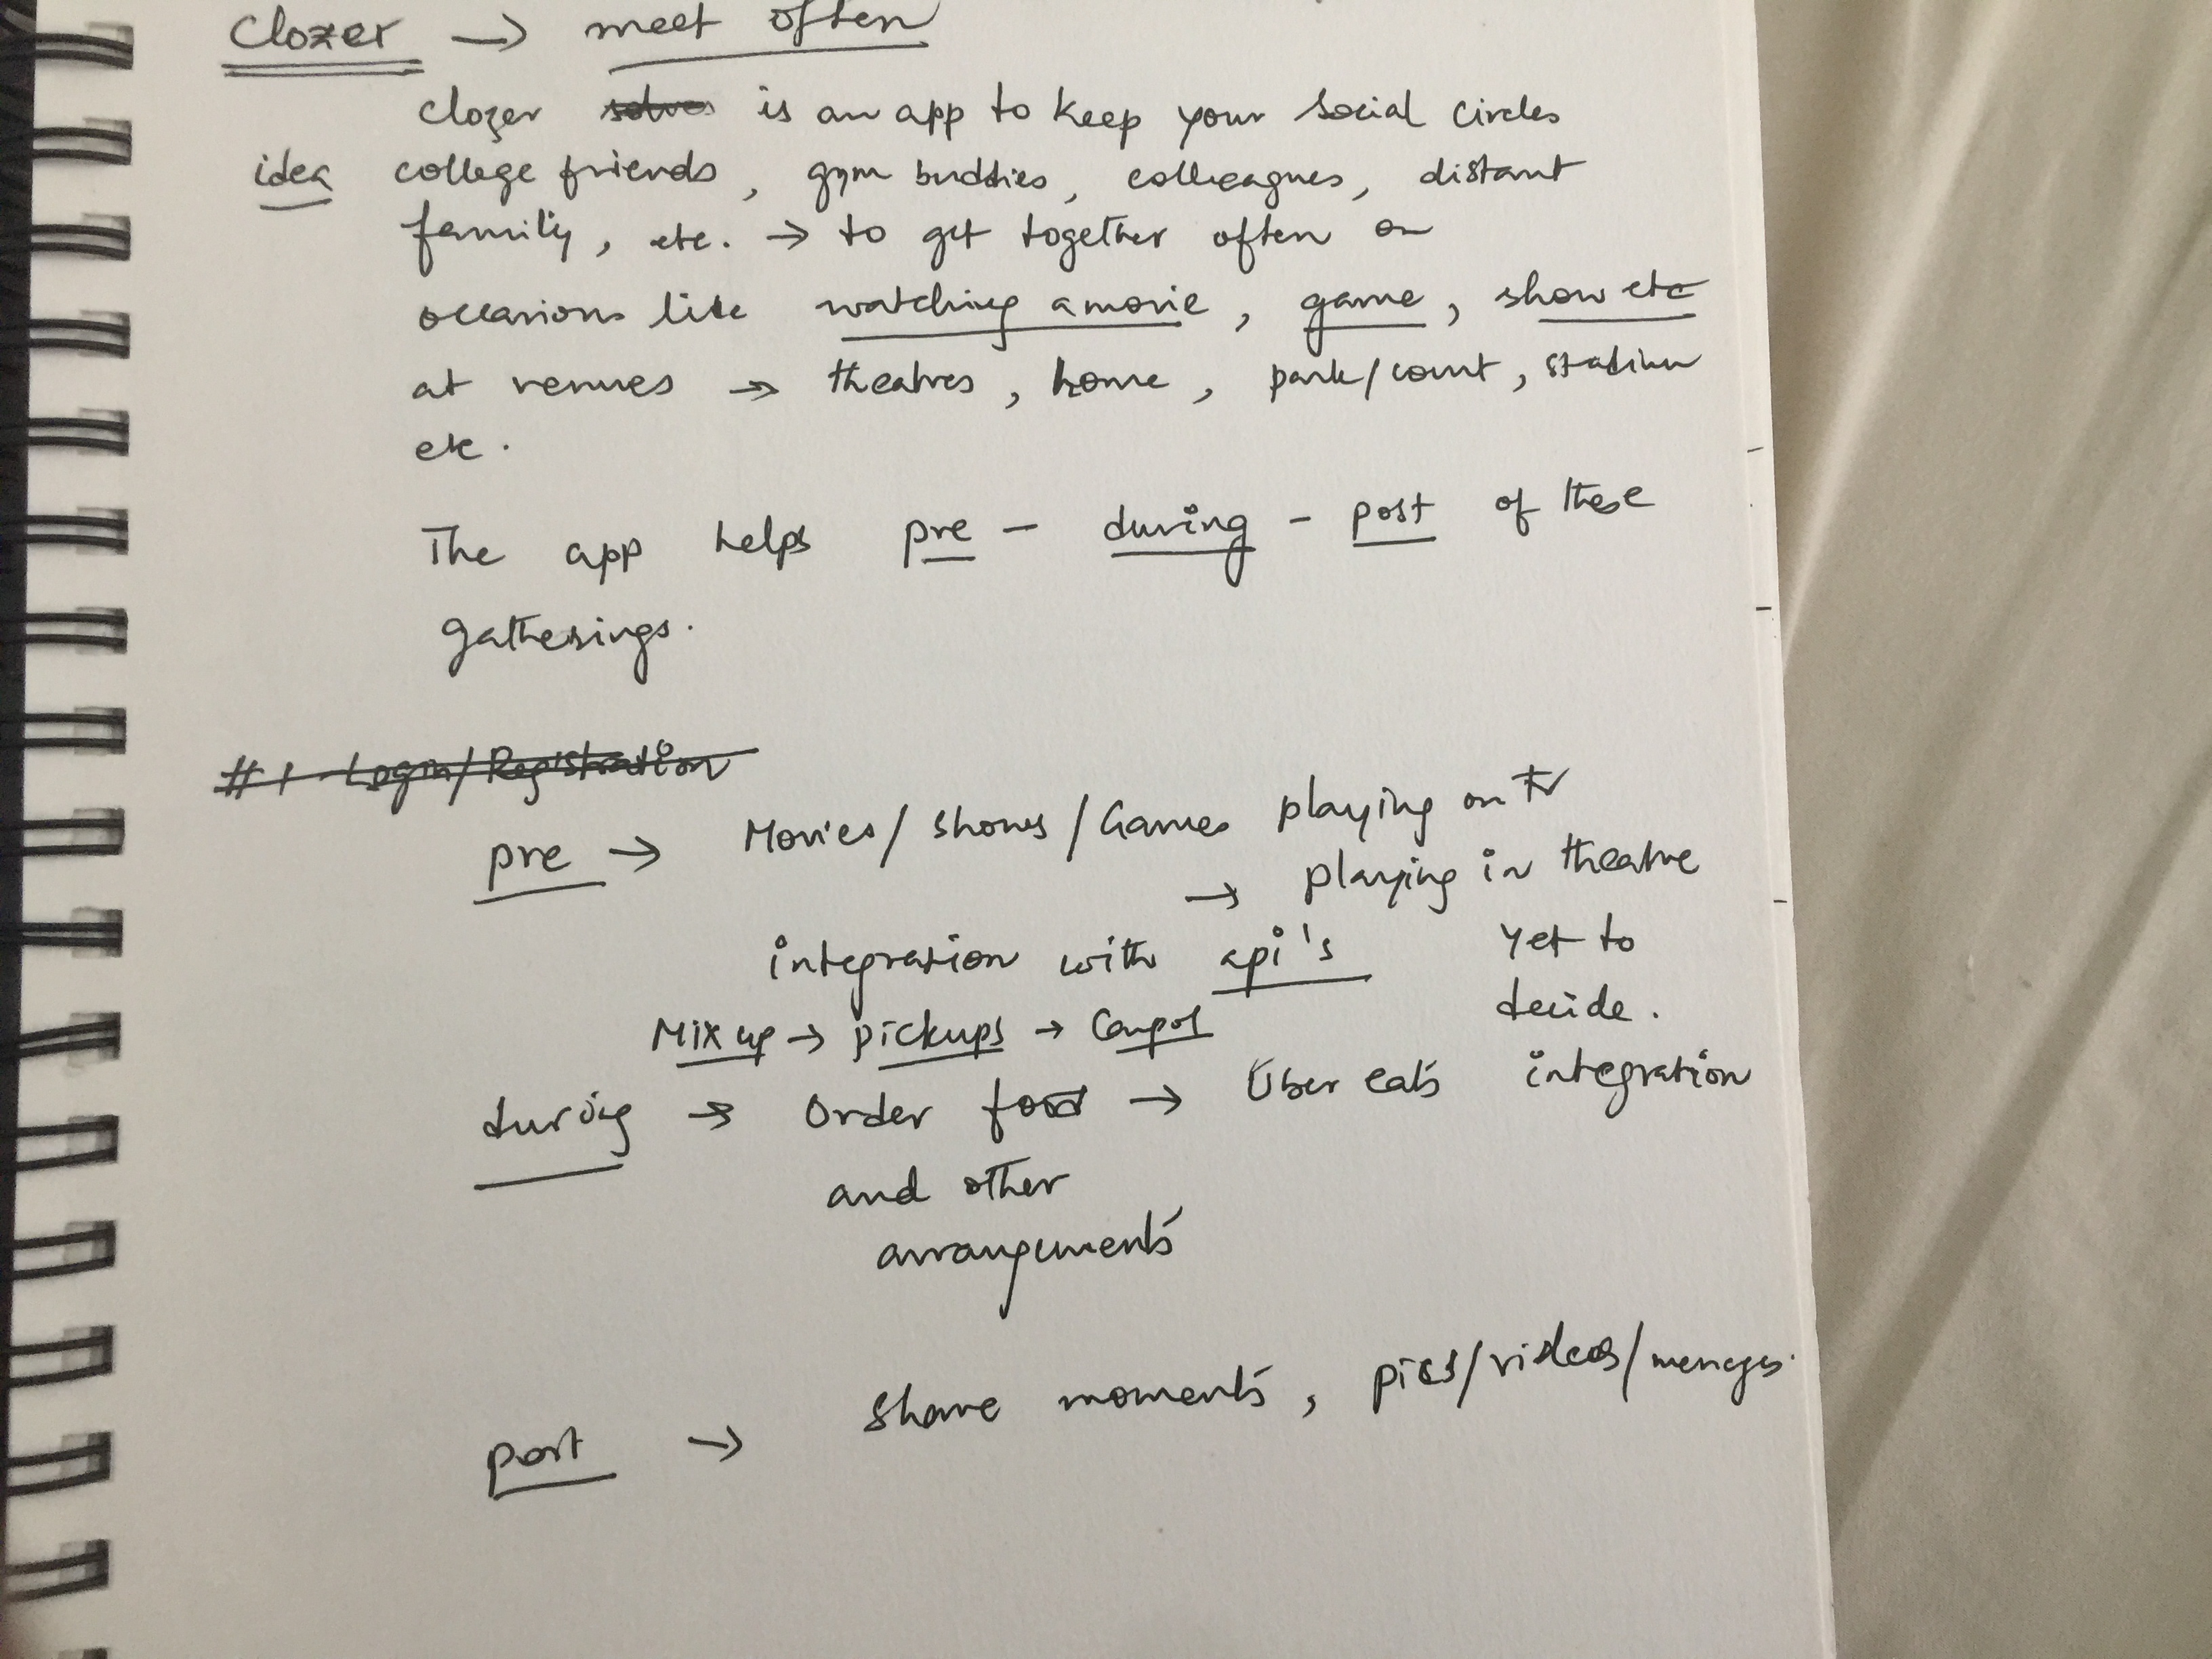 Clozer → meet often
clozer solves is an app to keep your social circles
idea college friends, gym buddies, colleagues, distant
family, etc. → to get together often on
occasions like watching a movie, game, show etc
at venues → theatres, home, park/court, stadium
etc.
The app helps pre - during - post of these
gatherings.
#1 Login/Registration
pre → Movies/shows/Games playing on TV
→ playing in theatre
integration with api's yet to
decide.
Mixup → pickups → Carpol
during → Order food → Uber eats integration
and other
arrangements
post → share moments, pics/videos/messages.